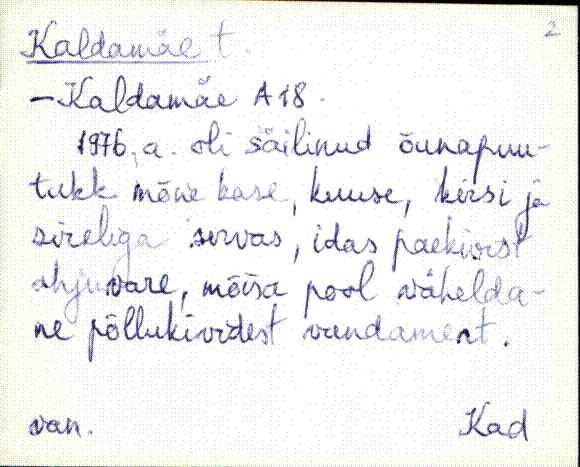 2
Kaldamäe t.
– Kaldamäe A 18.
1976. a. oli säilinud õunapuu-
tukk mõne kase, kuuse, kirsi ja
sireliga servas, idas paekivist
ahjuvare, mõisa pool vähelda-
ne põllukividest vundament.
van. Kad